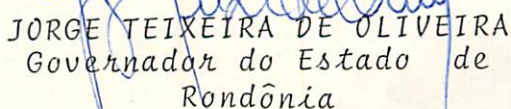 JORGE TEIXEIRA DE OLIVEIRA
Governador do Estado de
Rondônia